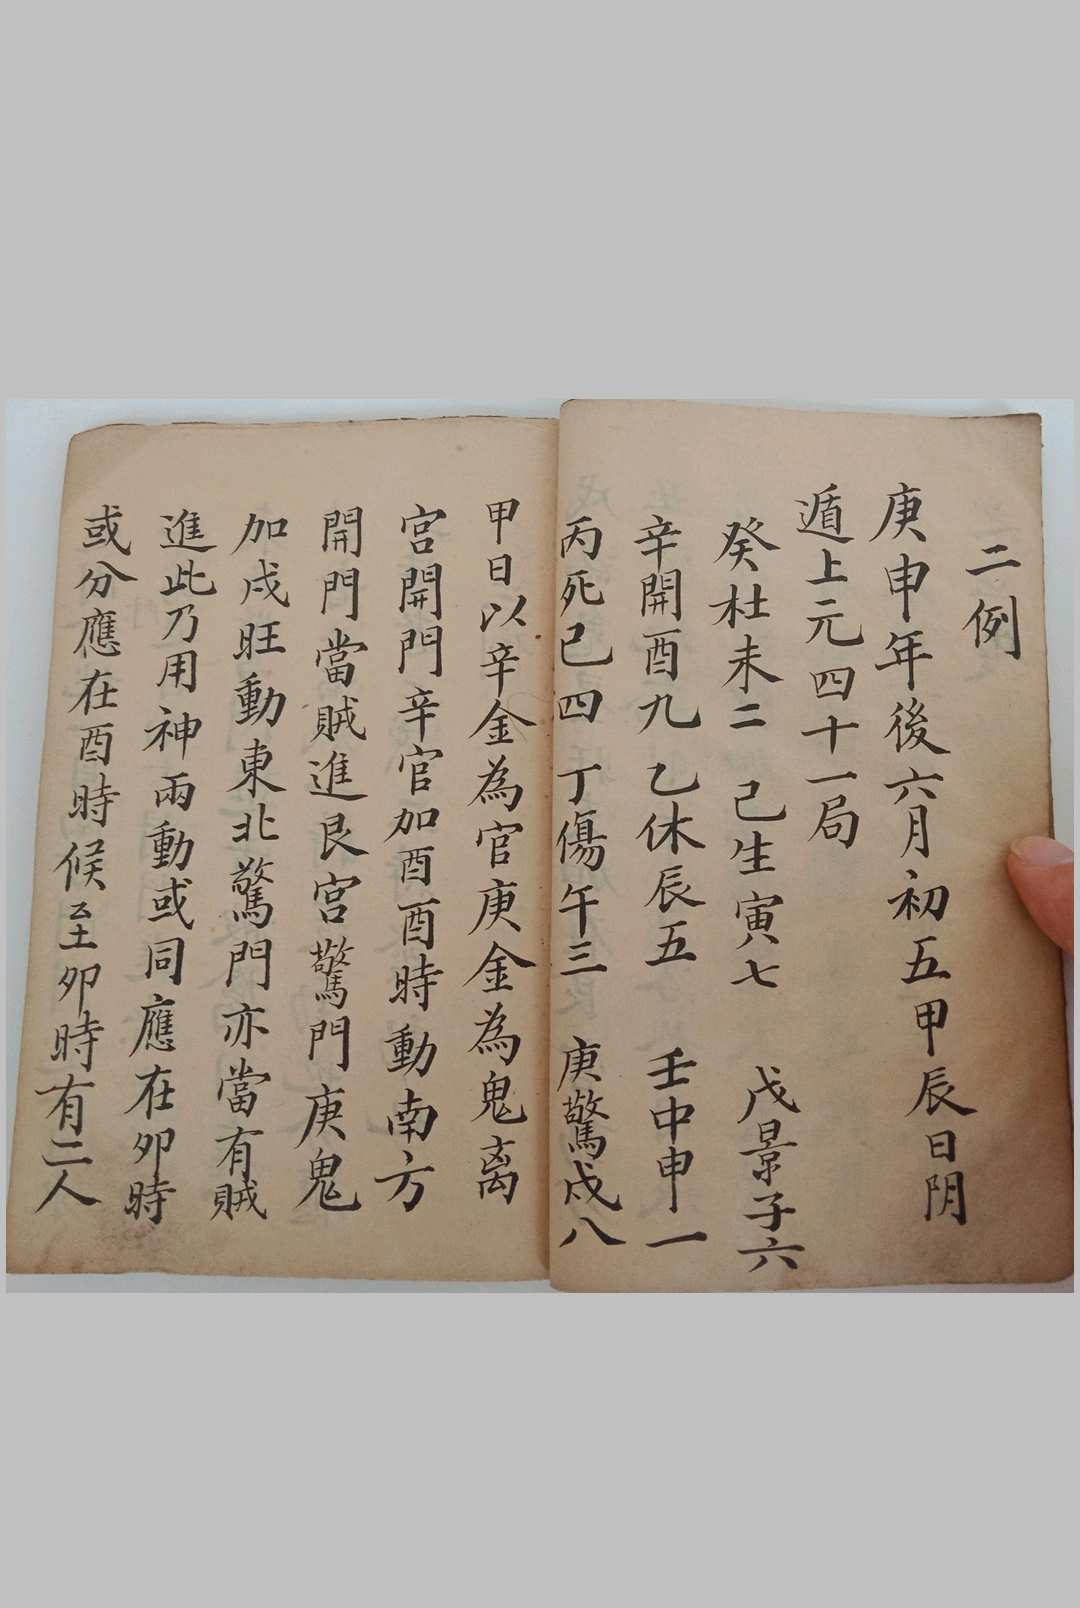 二例
庚申年後六月初五甲辰日阴
遁上元四十一局
癸杜未二 己生寅七 戊景子六
辛開酉九 乙休辰五 壬中申一
丙死巳四 丁傷午三 庚驚戌八
甲日以辛金為官庚金為鬼离
宮開門辛官加酉酉時動南方
開門當賊進艮宮驚門庚鬼
加戌旺動東北驚門亦當有賊
進此乃用神兩動或同應在卯時
或分應在酉時候至卯時有二人